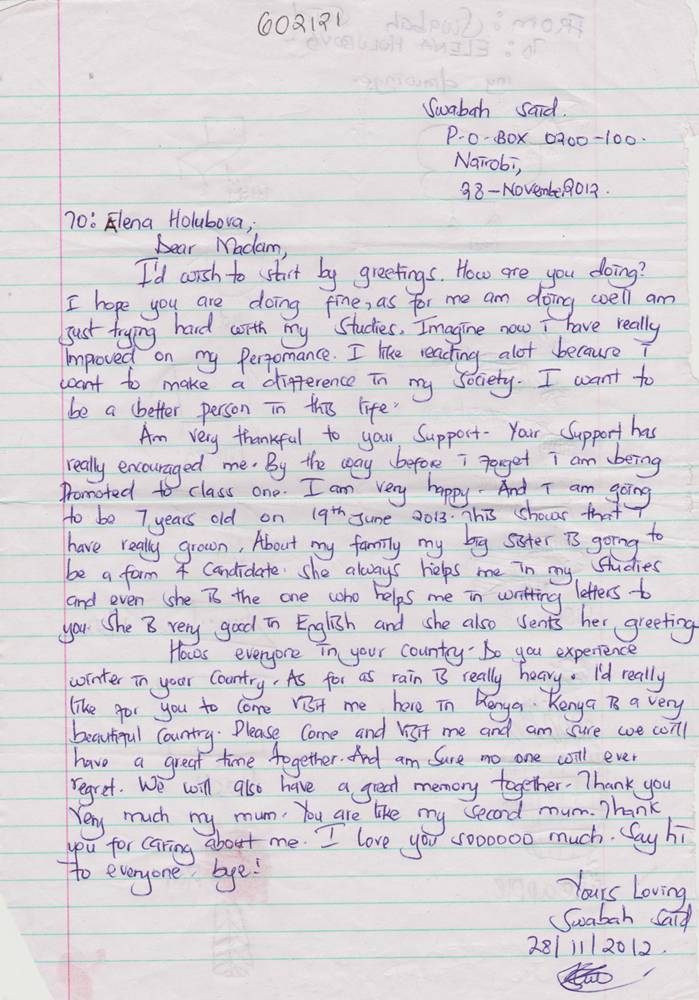 602121
Swabah Said.
P-O-BOX 0200-100.
Nairobi,
28-November 2012.
TO: Elena Holubova,.
Dear Madam,
I'd wish to start by greetings. How are you doing?
I hope you are doing fine, as for me am doing well am
just trying hard with my studies. Imagine now i have really
improved on my perfomance. I like reading alot because i
want to make a difference in my society. I want to
be a better person in this life.
Am very thankful to your support. Your support has
really encouraged me. By the way before i forget i am being
promoted to class one. I am very happy. And i am going
to be 7 years old on 19th June 2013. This shows that i
have really grown. About my family my big sister is going to
be a form 4 candidate. She always helps me in my studies
and even she is the one who helps me in writting letters to
you. She is very good in English and she also sents her greeting
Hows everyone in your country. Do you experience
winter in your country. As for as rain is really heavy. I'd really
like for you to come visit me here in Kenya. Kenya is a very
beautiful country. Please come and visit me and am sure we will
have a great time together. And am sure no one will ever
regret. We will also have a great memory together. Thank you
very much my mum. You are like my second mum. Thank
you for caring about me. I love you soooooo much. Say hi
to everyone. bye!
Yours Loving
Swabah Said
28/11/2012.